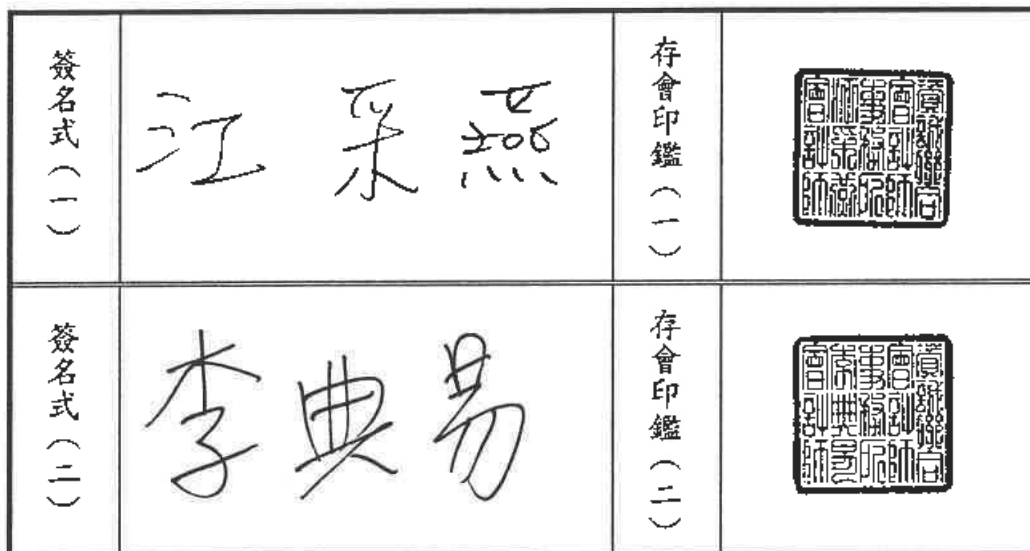 簽名式（一）
江采燕
存會印鑑（一）
資誠聯合
會計師
事務所
江采燕
會計師
簽名式（二）
李典易
存會印鑑（二）
資誠聯合
會計師
事務所
李典易
會計師